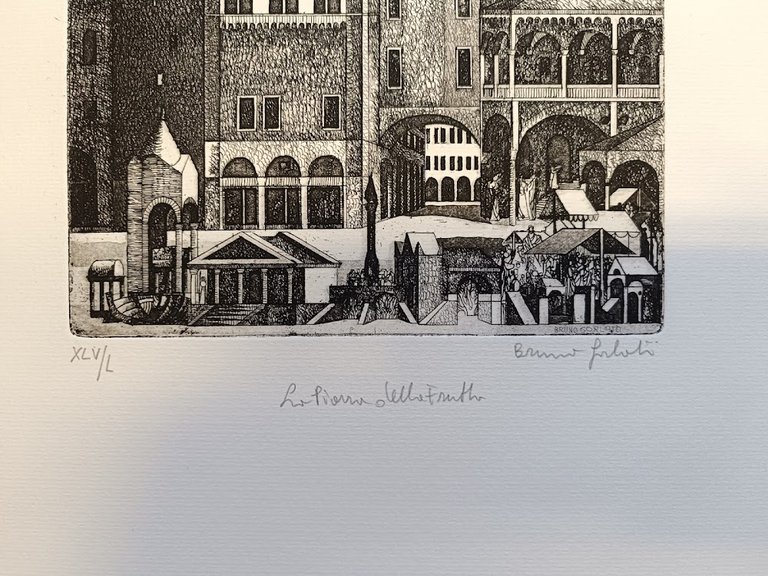 BRUNO GORLATO
XLV/L
Bruno Gorlato
La Piazza della Frutta